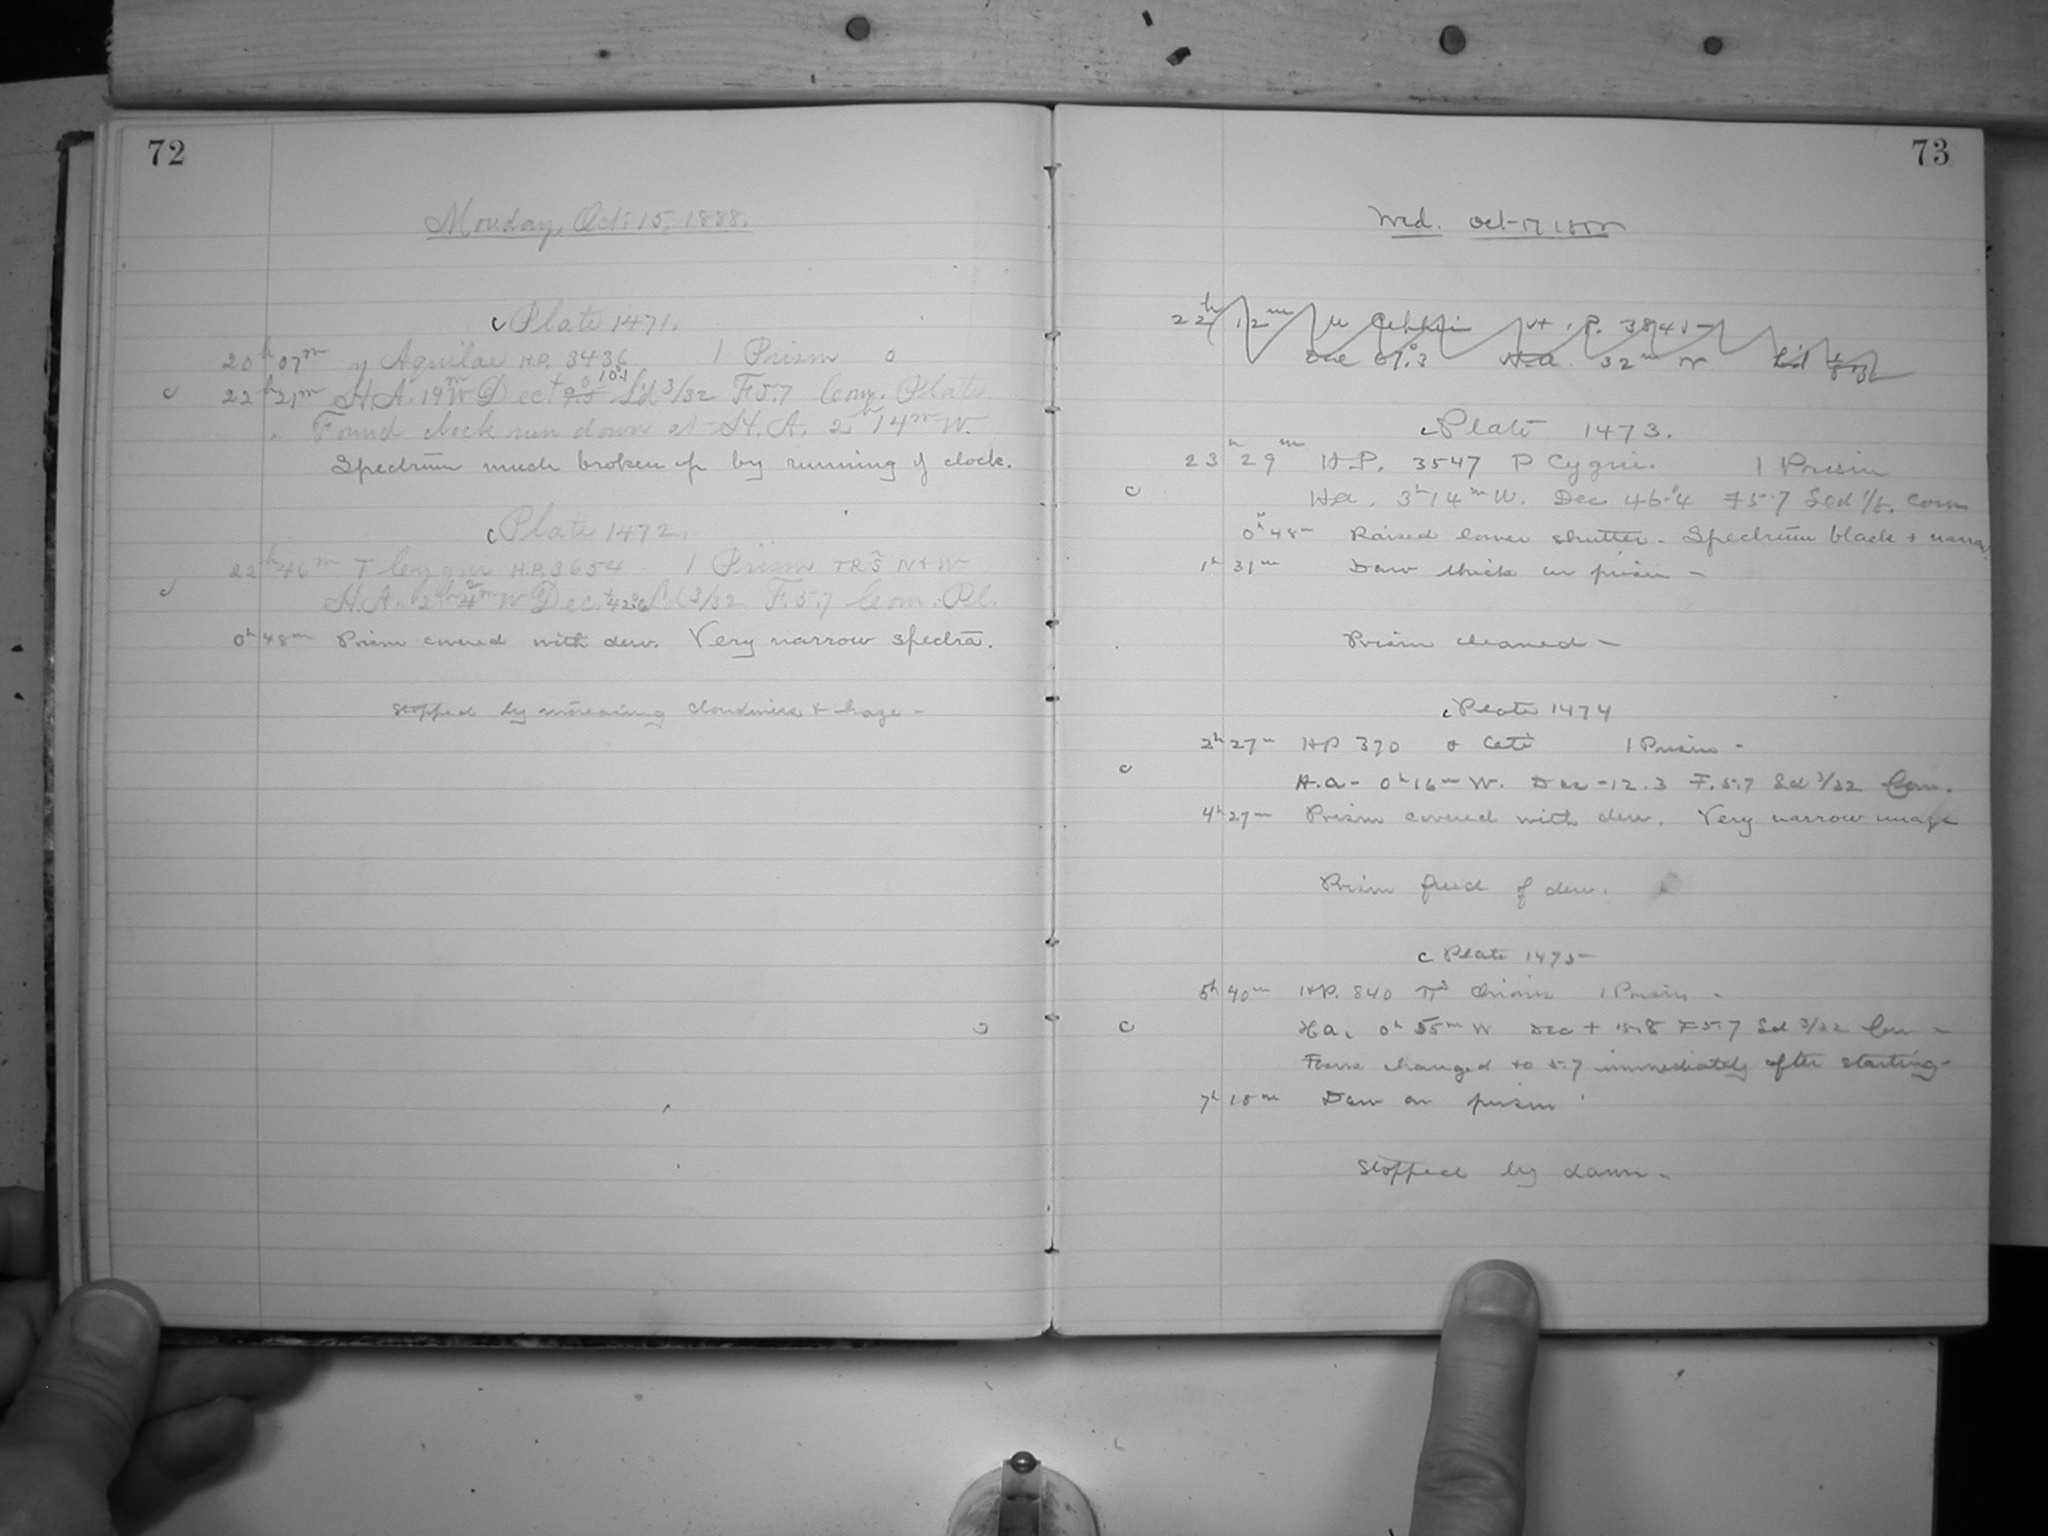 72
Monday, Oct. 15, 1888.
c Plate 1471.
20h 07m γ Aquilae H.P. 3436 1 Prism 0
c 22h 21m H.A. 19m W Dec. + 9.5 10°.1 S'd 3/32 F. 5.7 Com. Plate
Found clock run down at H.A. 2h 14m W.
Spectrum much broken up by running of clock.
c Plate 1472.
22h 46m T Cygni H.P. 3654 1 Prism TRS N+W
c H.A. 2h 4m W Dec. +42°.6 S'd 3/32 F. 5.7 Com. Pl.
0h 48m Prism covered with dew. Very narrow spectra.
Stopped by increasing cloudiness & haze -
73
Wed. Oct-17 1888
22h 12m μ Cephei H.P. 3845-
Dec 67.3 H.a. 32m W S'd
c Plate 1473.
23h 29m H.P. 3547 P Cygni. 1 Prism
c H.a. 3h 14m W. Dec 46°.4 F 5.7 Sed 1/8. Com
0h 48m Raised lower shutter. Spectrum black + narrow
1h 31m Dew thick on prism -
Prism cleaned -
c Plate 1474
2h 27m H.P. 370 o Ceti 1 Prism -
c H.a - 0h 16m W. Dec -12.3 F. 5.7 Sd 3/32 Com.
4h 27m Prism covered with dew. Very narrow image
Prism freed of dew.
c Plate 1475-
5h 40m H.P. 840 π3 Orionis 1 Prism -
c H.a. 0h 55m W Dec + 15.8 F 5.7 Sd 3/32 Com -
Focus changed to 5.7 immediately after starting -
7h 18m Dew on prism
Stopped by dawn -